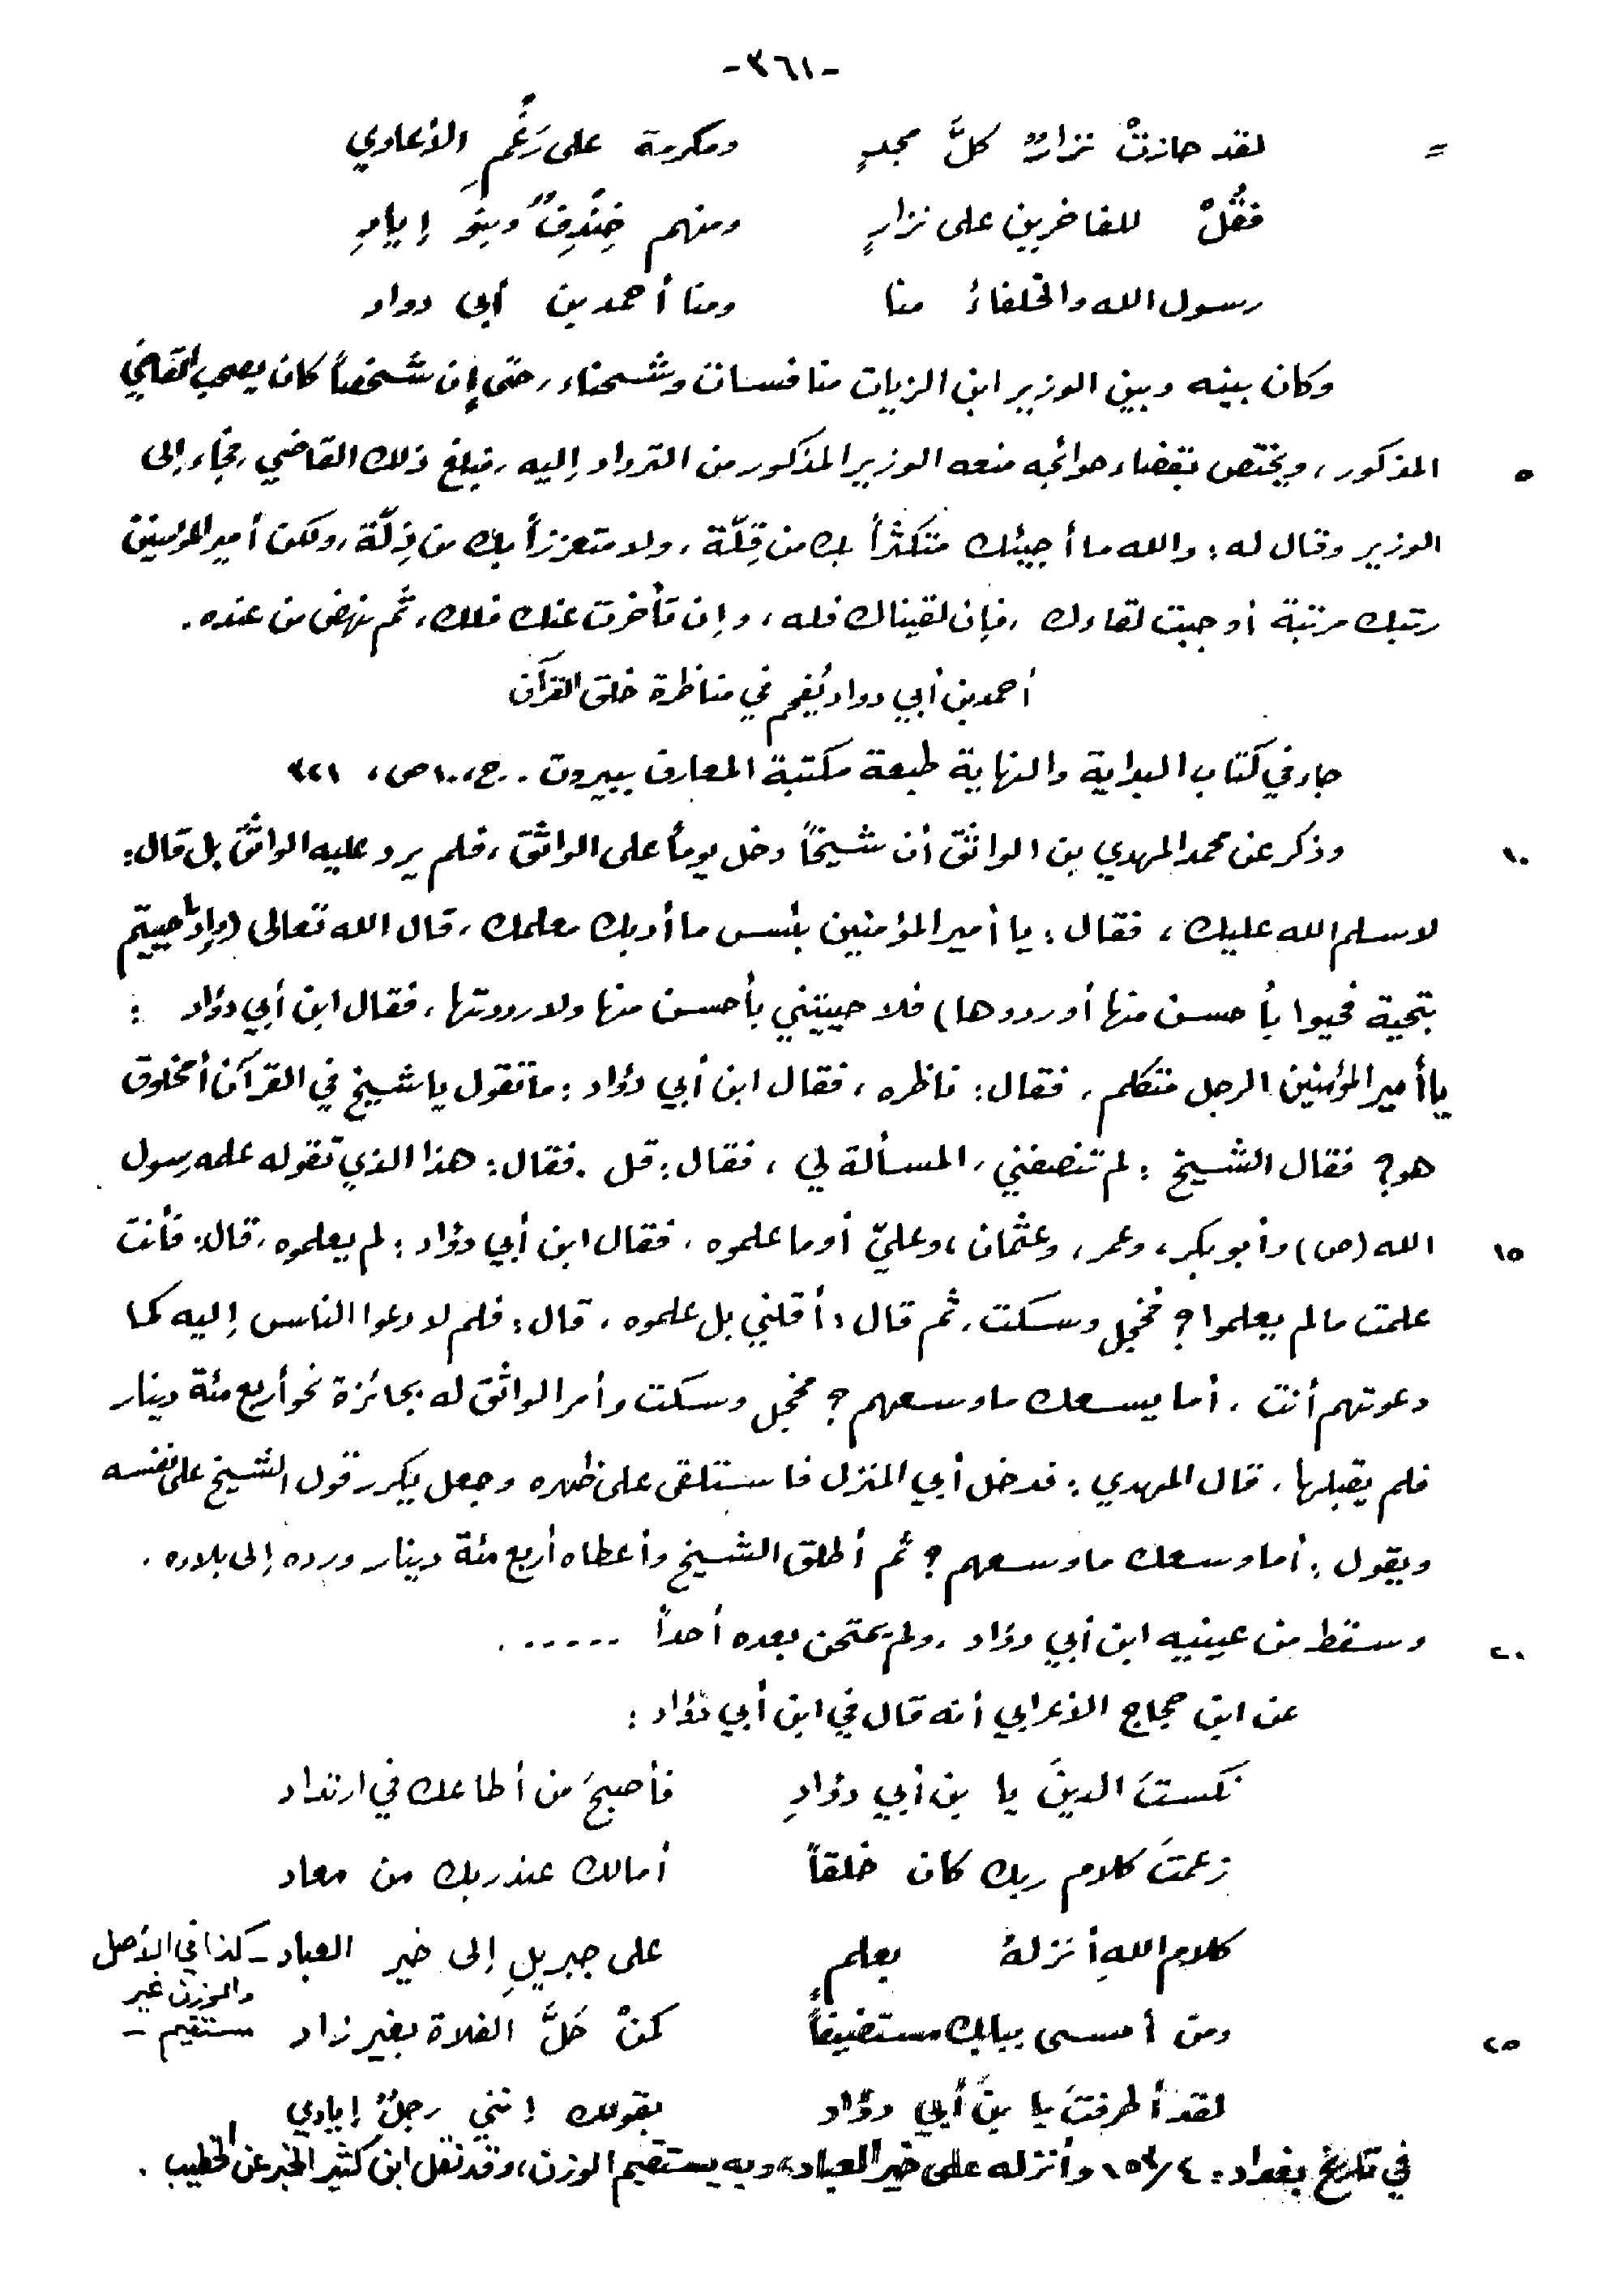 -٣٦١-
= لقد حازتْ نزارٌ كلَّ مجدٍ ومكرمة على رَغْمِ الأعادي
فقُلْ للفاخرين على نزارٍ ومنهم خِنْدِفٌ وبنو إيادِ
رسول الله والخلفاءُ منا ومنا أحمد بن أبي دواد
وكان بينه وبين الوزير ابن الزيات منافسات وشحناء، حتى إن شخصاً كان يصحب القاضي
٥ المذكور، ويختص بقضاء حوائجه منعه الوزير المذكور من الترداد إليه، فبلغ ذلك القاضي، فجاء إلى
الوزير وقال له: والله ما أجيئك متكثراً بك من قِلّة، ولا متعززاً بك من ذِلّة، ولكن أمير المؤمنين
رتبك مرتبة أوجبت لقاءك، فإن لقيناك فله، وإن تأخرت عنك فلك، ثم نهض من عنده.
أحمد بن أبي دواد يُفحم في مناظرة خلق القرآن
جاء في كتاب البداية والنهاية طبعة مكتبة المعارف ببيروت.. ج، ١٠، ص، ٣٢١
١٠ وذكر عن محمد المهدي بن الواثق أن شيخاً دخل يوماً على الواثق، فلم يرد عليه الواثق بل قال:
لا سلم الله عليك، فقال: يا أمير المؤمنين بئس ما أدبك معلمك، قال الله تعالى (وإذا حييتم
بتحية فحيوا بأحسن منها أو ردوها) فلا حييتني بأحسن منها ولا رددتها، فقال ابن أبي دؤاد :
يا أمير المؤمنين الرجل متكلم، فقال: ناظره، فقال ابن أبي دؤاد: ما تقول يا شيخ في القرآن أمخلوق
هو؟ فقال الشيخ: لم تنصفني، المسألة لي، فقال: قل. فقال: هذا الذي تقوله علمه رسول
١٥ الله (ص) وأبو بكر، وعمر، وعثمان، وعليّ أو ما علموه، فقال ابن أبي دؤاد: لم يعلموه، قال: فأنت
علمت ما لم يعلموا؟ فخجل وسكت، ثم قال: أقلني بل علموه، قال: فلم لا دعوا الناس إليه كما
دعوتهم أنت، أما يسعك ما وسعهم؟ فخجل وسكت وأمر الواثق له بجائزة نحو أربع مئة دينار
فلم يقبلها، قال المهدي: فدخل أبي المنزل فاستلقى على ظهره وجعل يكرر قول الشيخ على نفسه
ويقول: أما وسعك ما وسعهم؟ ثم أطلق الشيخ وأعطاه أربع مئة دينار ورده إلى بلاده.
٢٠ وسقط من عينيه ابن أبي دؤاد، ولم يمتحن بعده أحداً .......
عن ابن حجاج الأعرابي أنه قال في ابن أبي دؤاد:
نكستَ الدينَ يا بن أبي دؤادِ فأصبحَ من أطاعك في ارتداد
زعمتَ كلام ربك كان خلقاً أمالك عند ربك من معاد
كلام اللهِ أنزلهُ بعلمٍ على جبريلِ إلى خير العباد - كذا في الأصل
والوزن غير
٢٥ ومن أمسى ببابك مستضيفاً كمنْ حَلَّ الفلاة بغير زاد مستقيم -
لقد أطرفتَ يا بنَ أبي دؤاد بقولك إنني رجلٌ إيادي
في تاريخ بغداد: ١٥٣/٤ وأنزله على خير العباد، وبه يستقيم الوزن، وقد نقل ابن كثير الخبر عن الخطيب.